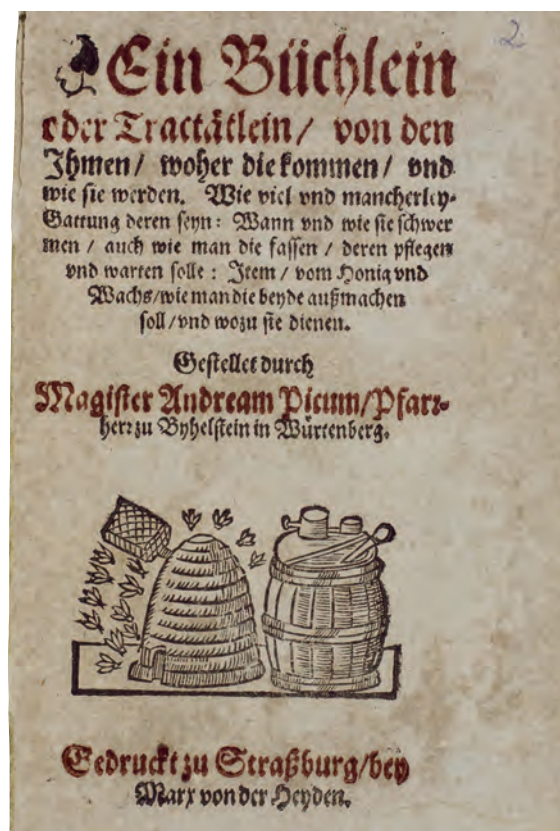 2
Ein Büchlein
oder Tractätlein/ von den
Ihmen/ woher die kommen/ vnd
wie sie werden. Wie viel vnd mancherley
Gattung deren seyn: Wann vnd wie sie schwer
men / auch wie man die fassen / deren pflegen
vnd warten solle : Item / vom Honig vnd
Wachs/wie man die beyde außmachen
soll/vnd wozu sie dienen.
Gestellet durch
Magister Andream Picum/Pfarr-
herr zu Byhelstein in Würtenberg.
Gedruckt zu Straßburg/bey
Marx von der Heyden.